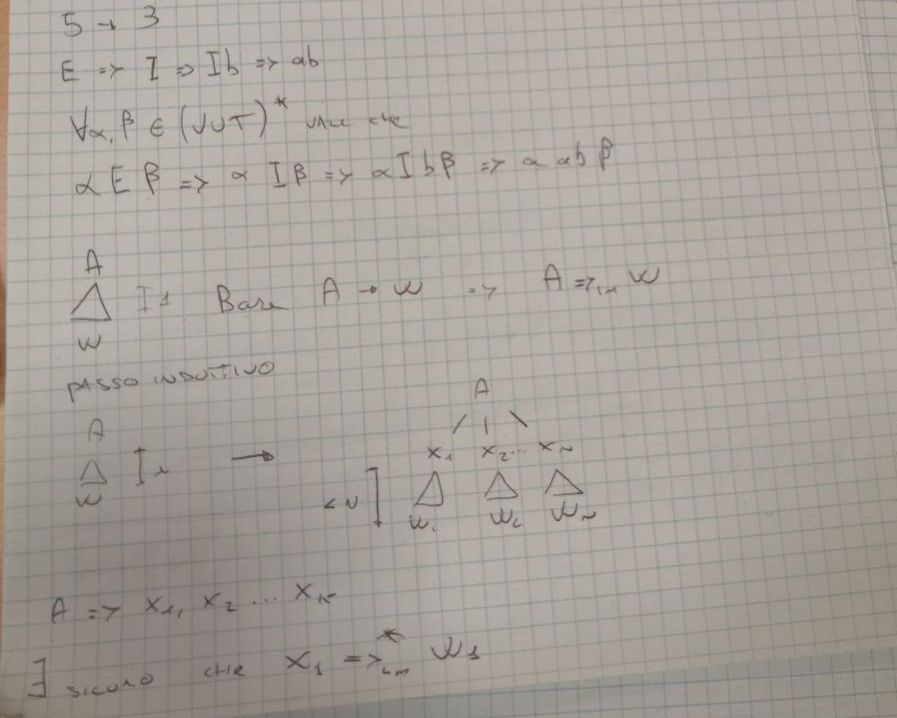 5 → 3
E => I => Ib => ab
∀α, β ∈ (V∪T)* vale che
α E β => α I β => α I b β => α a b β
A
w
I 1 Base A → w => A =>lm w
PASSO INDUTTIVO
A
w
I n →
A
x1 x2... xn
< N
w1 w2 wn
A => x1, x2 ... xk
∃ sicuro che x1 =>*lm w1